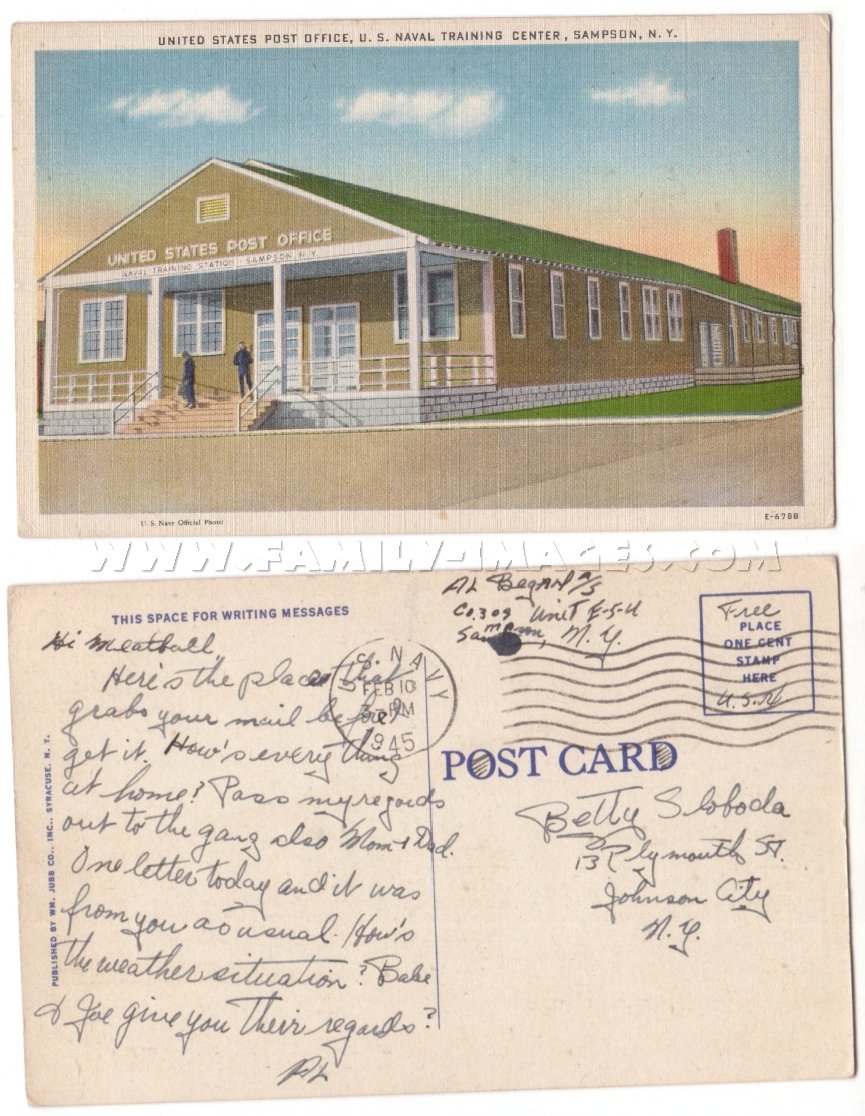 UNITED STATES POST OFFICE, U. S. NAVAL TRAINING CENTER, SAMPSON, N. Y.
UNITED STATES POST OFFICE
NAVAL TRAINING STATION SAMPSON, N.Y.
U. S. Navy Official Photo
E-6788
WWW.FAMILY-IMAGES.COM
THIS SPACE FOR WRITING MESSAGES
Hi Meatball,
Here's the place that
grabs your mail before I
get it. How's every thing
at home? Pass my regards
out to the gang also Mom & Dad.
One letter today and it was
from you as usual. How's
the weather situation? Babe
& Joe give you their regards?
AL
PUBLISHED BY WM. JUBB CO., INC., SYRACUSE, N. Y.
NAVY
FEB 10
PM
1945
AL A/S
Co. 309 Unit E-5-U
Sampson, N.Y.
Free
PLACE
ONE CENT
STAMP
HERE
U.S.N.
POST CARD
Betty Sloboda
13 Plymouth St.
Johnson City
N.Y.